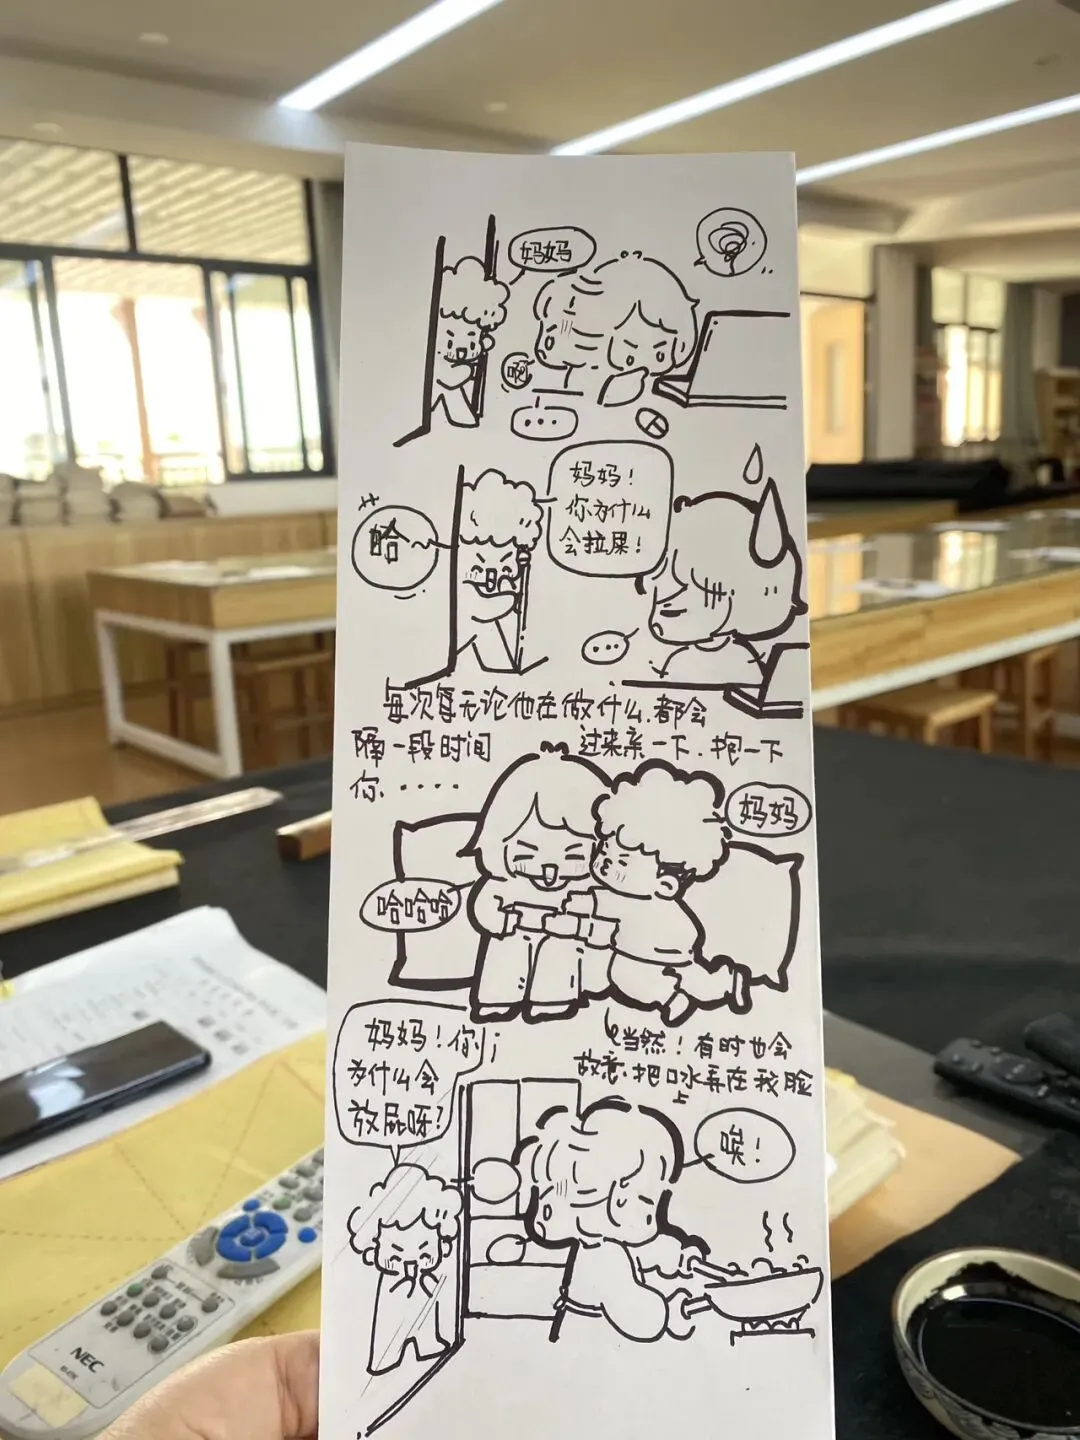 妈妈
啊
...
妈妈!
你为什么
会拉屎!
哈
...
每次每无论他在做什么.都会
隔一段时间 过来亲一下.抱一下
你.....
妈妈
哈哈哈
妈妈!你
为什么会
放屁呀?
当然!有时也会
故意.把口水弄在我脸
上
唉!
NEC